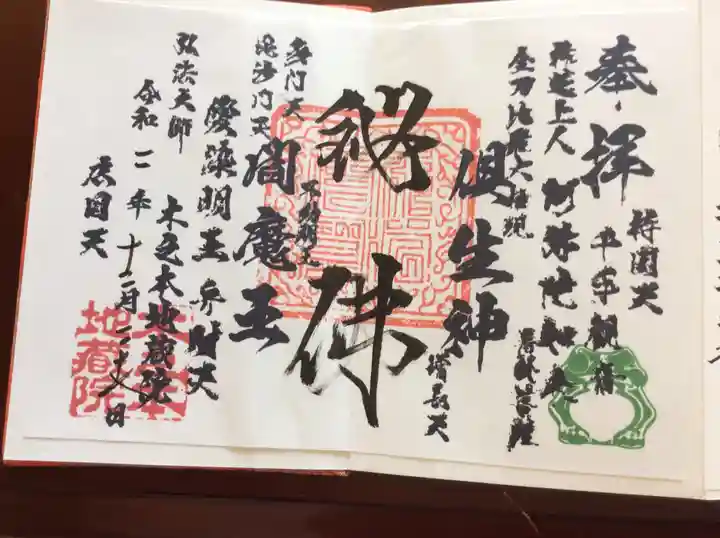 奉拝
持国天
千手観音
阿弥陀如来
金刀比羅大権現
倶生神
増長天
秘佛
不動明王
多聞天
毘沙門天
閻魔王
愛染明王
弁財天
弘法大師
令和二年
十二月
木之本地蔵院
広目天
木之本
地蔵院